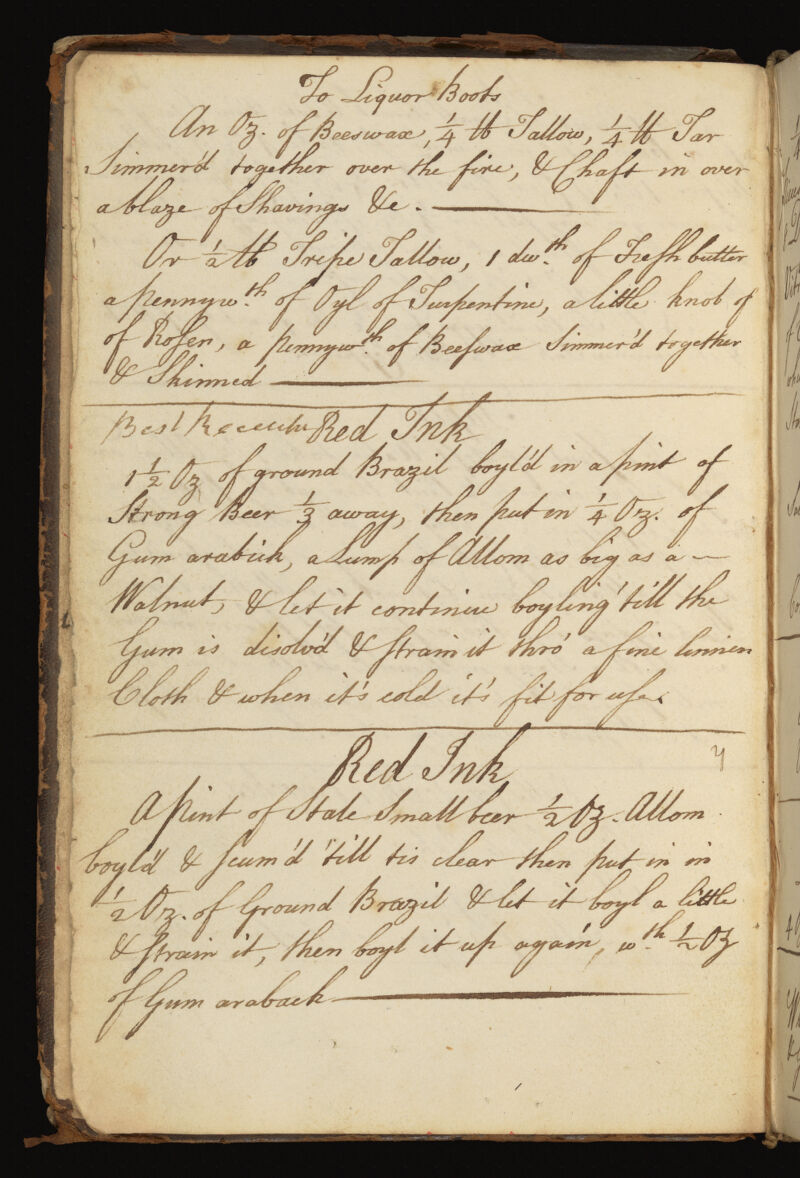 To Liquor Boots
An Oz. of Beeswax, 1/4 lb Tallow, 1/4 lb Tar
Simmer'd together over the fire, & Chaft in over
a blaze of Shavings &c.
Or 1/2 lb Tripe Tallow, 1 dwth. of Fresh butter
a pennywth. of Oyl of Turpentine, a little knob of
of Rosen, a pennywth. of Beeswax Simmer'd together
& Skinned
Best Red Ink
1 1/2 Oz of ground Brazil boyl'd in a pint of
Strong Beer 1/3 away, then put in 1/4 Oz. of
Gum arabick, a Lump of Allom as big as a
Walnut, & let it continue boyling 'till the
Gum is disolv'd & strain it thro' a fine linnen
Cloth & when it's cold it's fit for use.
Red Ink
A pint of Stale Small beer 1/2 Oz. Allom
boyl'd & scum'd 'till tis clear then put in in
1/2 Oz. of Ground Brazil & let it boyl a little
& strain it, then boyl it up again, wth. 1/2 Oz
of Gum araback